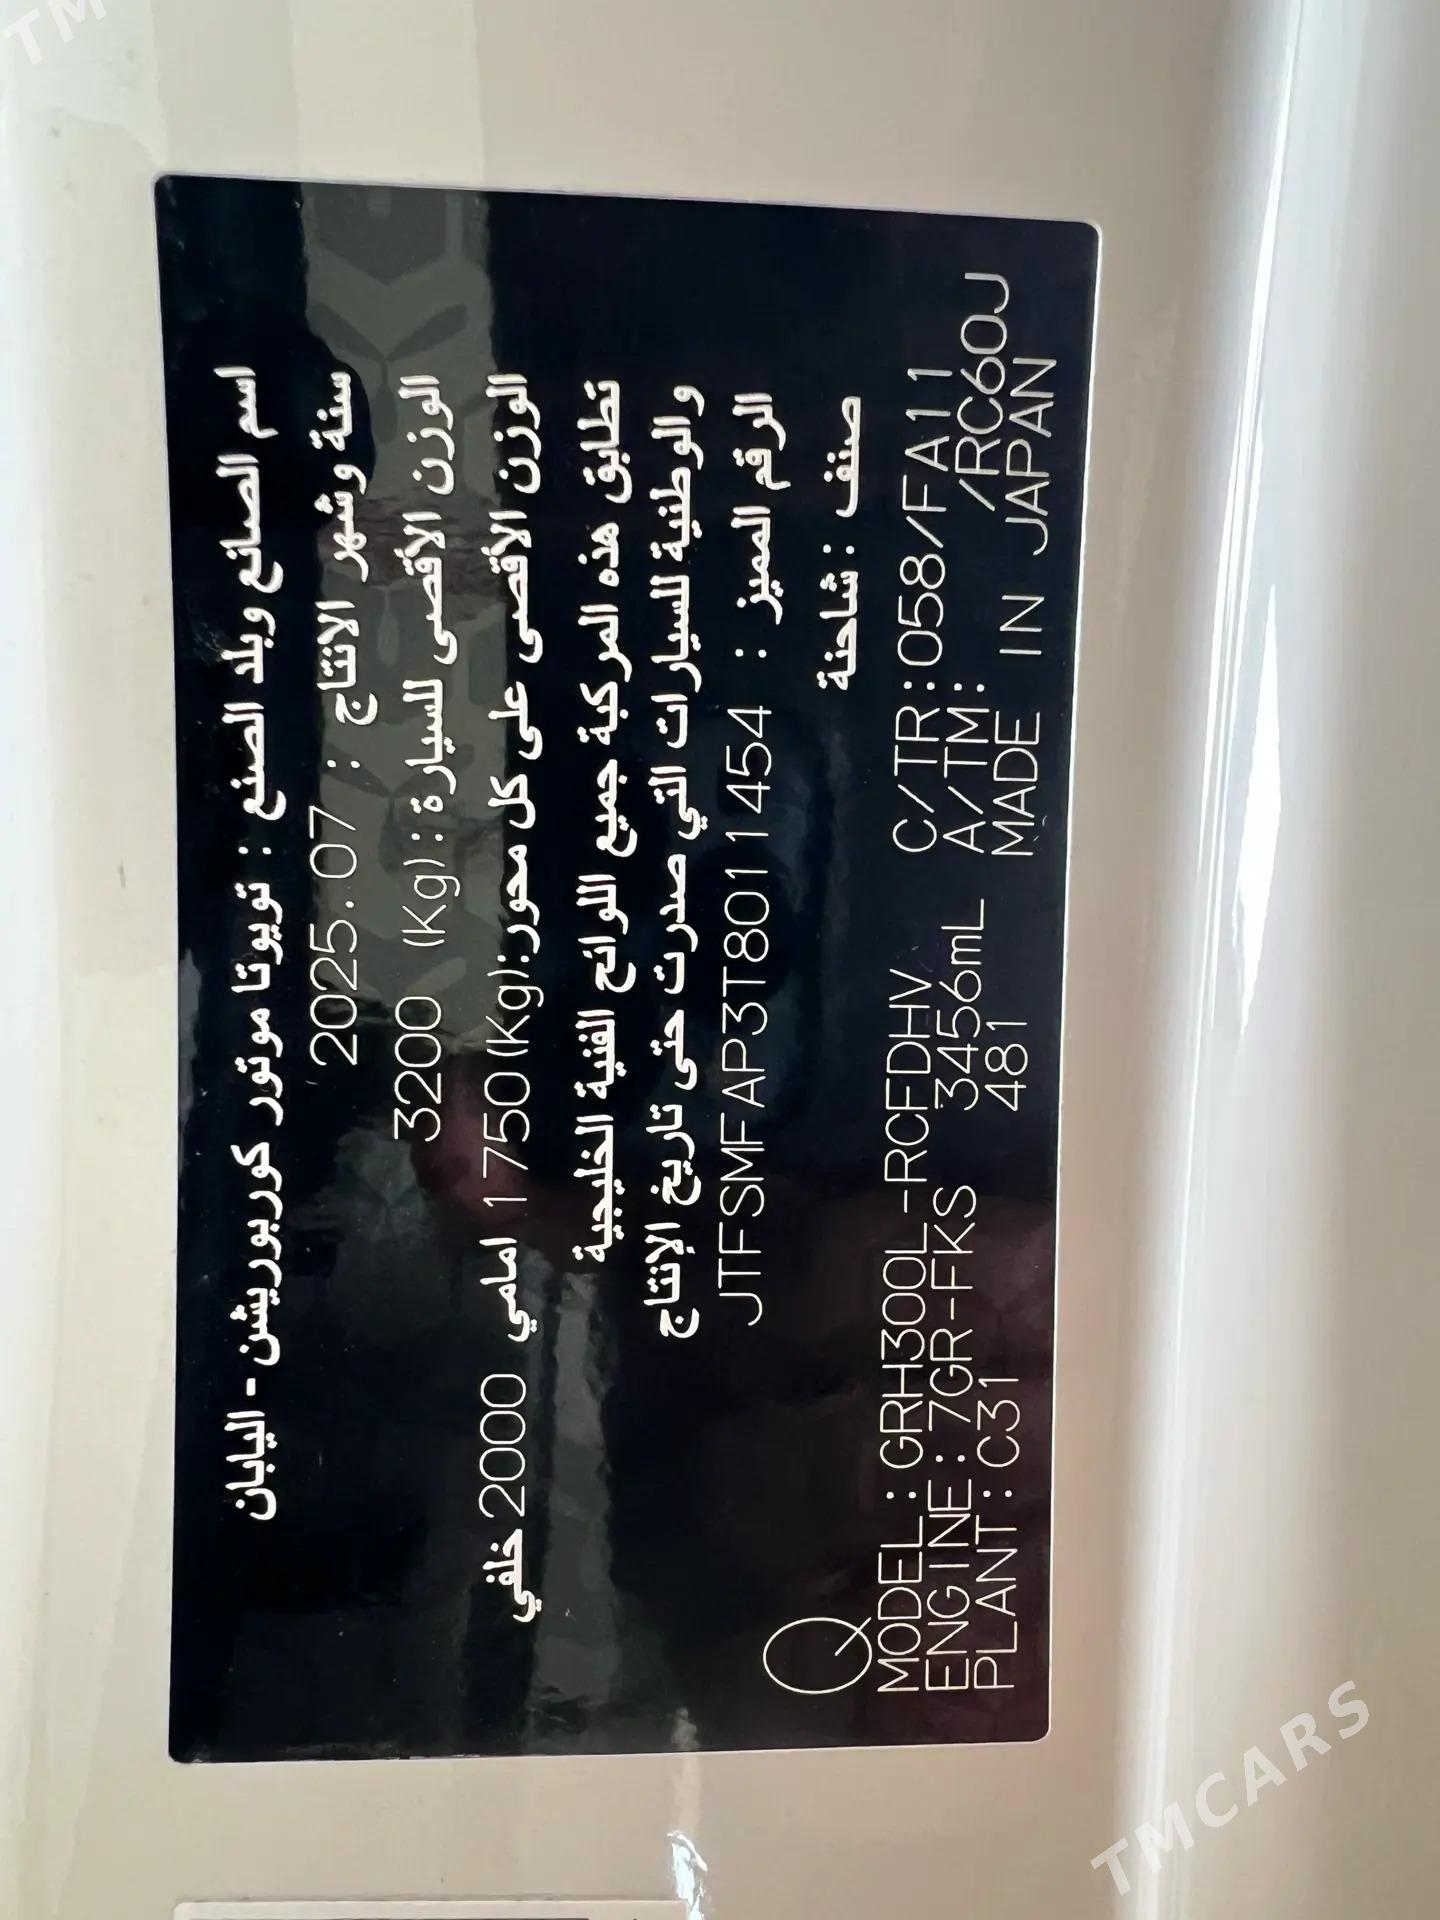 اسم الصانع وبلد الصنع : تويوتا موتور كوربوريشن - اليابان
سنة وشهر الانتاج : 2025.07
الوزن الأقصى للسيارة : (Kg) 3200
الوزن الأقصى على كل محور:(Kg) 1750 امامي 2000 خلفي
تطابق هذه المركبة جميع اللوائح الفنية الخليجية
والوطنية للسيارات التي صدرت حتى تاريخ الإنتاج
الرقم المميز : JTFSMFAP3T8011454
صنف : شاحنة
MODEL : GRH300L-RCFDHV C/TR:058/FA11
ENGINE : 7GR-FKS 3456mL A/TM: /RC60J
PLANT : C31 481 MADE IN JAPAN
TMCARS
TM